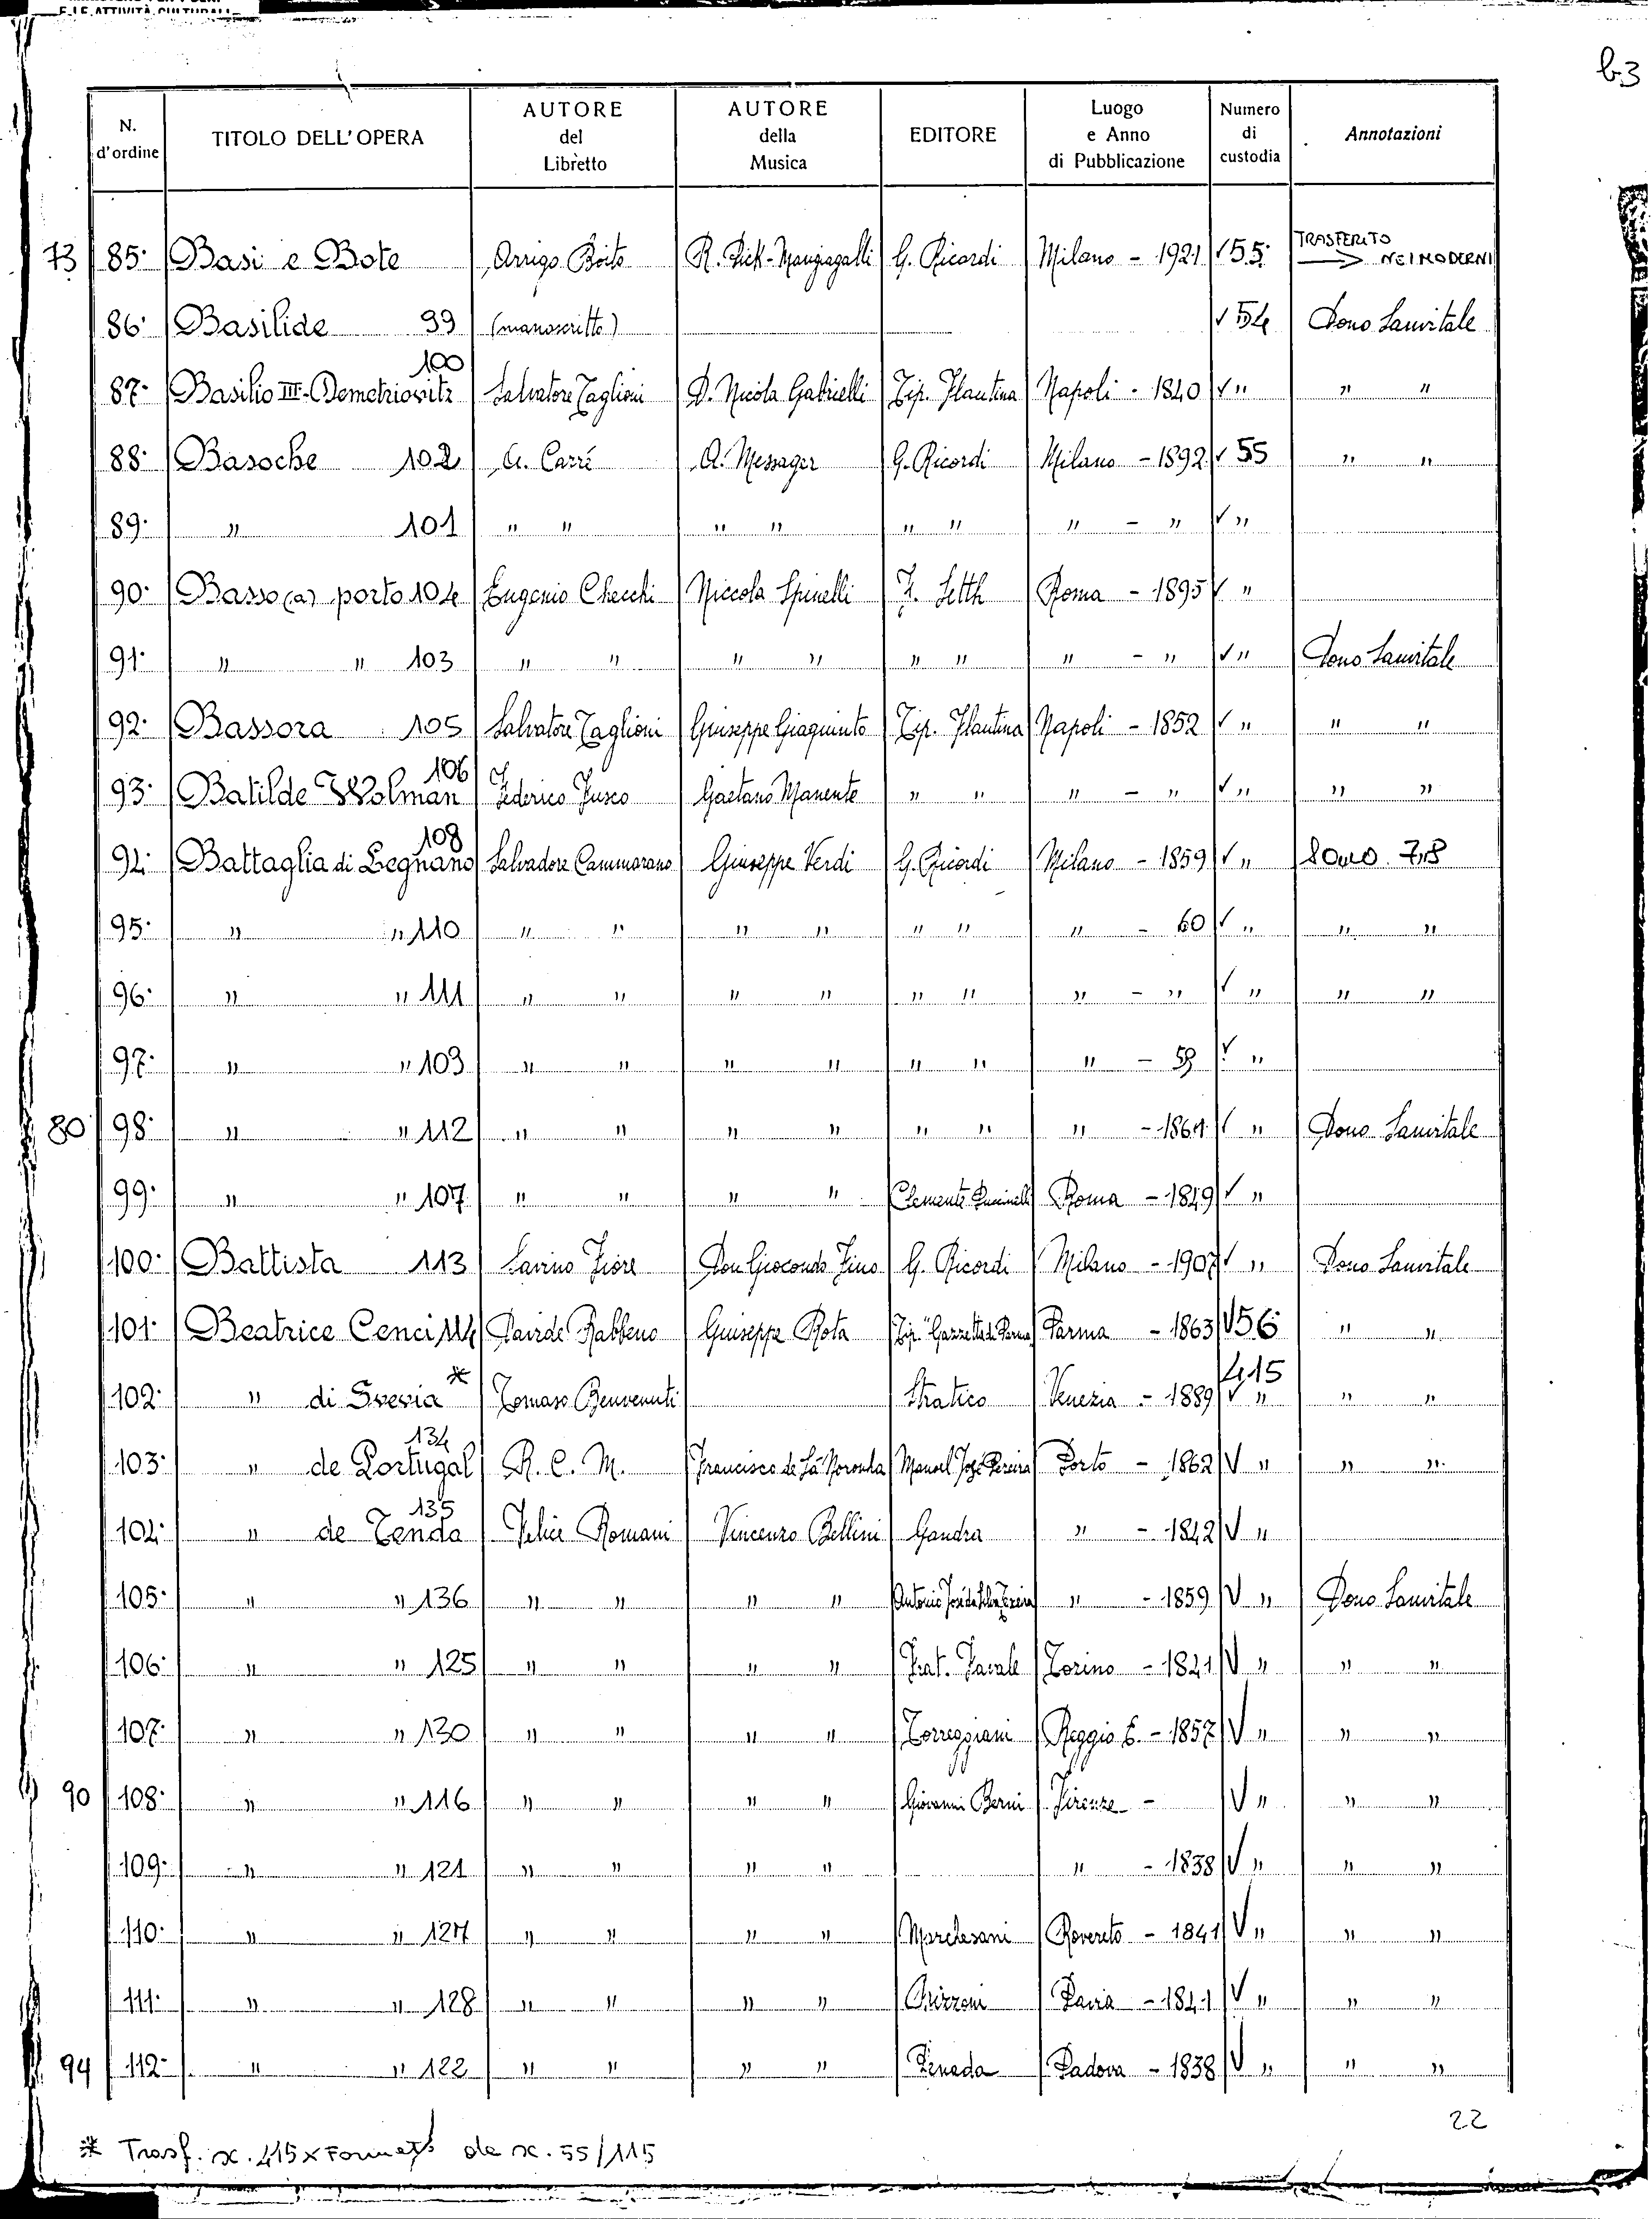 E LE ATTIVITÀ CULTURALI
b3
N. d'ordine TITOLO DELL'OPERA AUTORE del Libretto AUTORE della Musica EDITORE Luogo e Anno di Pubblicazione Numero di custodia Annotazioni
73 85. Basi e Bote Arrigo Boito R. Pick-Mangiagalli G. Ricordi Milano - 1921 √ 55. TRASFERITO → NEI MODERNI
86. Basilide 99 (manoscritto) √ 54 Dono Sanvitale
100
87. Basilio III-Demetriovitz Salvatore Taglioni D. Nicola Gabrielli Tip. Flautina Napoli - 1840 √ " " "
88. Basoche 102 A. Carré A. Messager G. Ricordi Milano - 1892 √ 55 " "
89. " 101 " " " " " " " - " √ "
90. Basso (a) porto 104 Eugenio Checchi Niccola Spinelli Roma - 1895 √ "
91. " " 103 " " " " " " " - " √ " Dono Sanvitale
92. Bassora 105 Salvatore Taglioni Giuseppe Giaquinto Tip. Flautina Napoli - 1852 √ " " "
106
93. Batilde Wolman Federico Fusco Gaetano Manente " " " - " √ " " "
108
94. Battaglia di Legnano Salvadore Cammarano Giuseppe Verdi G. Ricordi Milano - 1859 √ "
95. " " 110 " " " " " " " - 60 √ " " "
96. " " 111 " " " " " " " - " √ " " "
97. " " 103 " " " " " " " - 59 √ "
80 98. " " 112 " " " " " " " - 1861 √ " Dono Sanvitale
99. " " 107 " " " " Clemente Puccinelli Roma - 1849 √ "
100. Battista 113 Savino Fiore Don Giocondo Fino G. Ricordi Milano - 1907 √ " Dono Sanvitale
101. Beatrice Cenci 114 Davide Rabbeno Giuseppe Rota Tip. "Gazzetta di Parma Parma - 1863 √ 56 " "
* 415
102. " di Svevia Tomaso Benvenuti Stratico Venezia - 1889 √ " " "
134
103. " de Portugal R. C. M. Francisco de Sá Noronha Manoel José Pereira Porto - 1862 √ " " "
135
104. " de Tenda Felice Romani Vincenzo Bellini Gandra " - 1842 √ "
105. " " 136 " " " " Antonio José da Silva " - 1859 √ " Dono Sanvitale
106. " " 125 " " " " Frat. Favale Torino - 1841 √ " " "
107. " " 130 " " " " Torreggiani Reggio E. - 1857 √ " " "
90 108. " " 116 " " " " Giovanni Berni Firenze - √ " " "
109. " " 121 " " " " " - 1838 √ " " "
110. " " 127 " " " " Marchesani Rovereto - 1841 √ " " "
111. " " 128 " " " " Bizzoni Pavia - 1841 √ " " "
94 112. " " 122 " " " " Penada Padova - 1838 √ " " "
22
* Trasf. x. 415 x Formato da x. 55/115